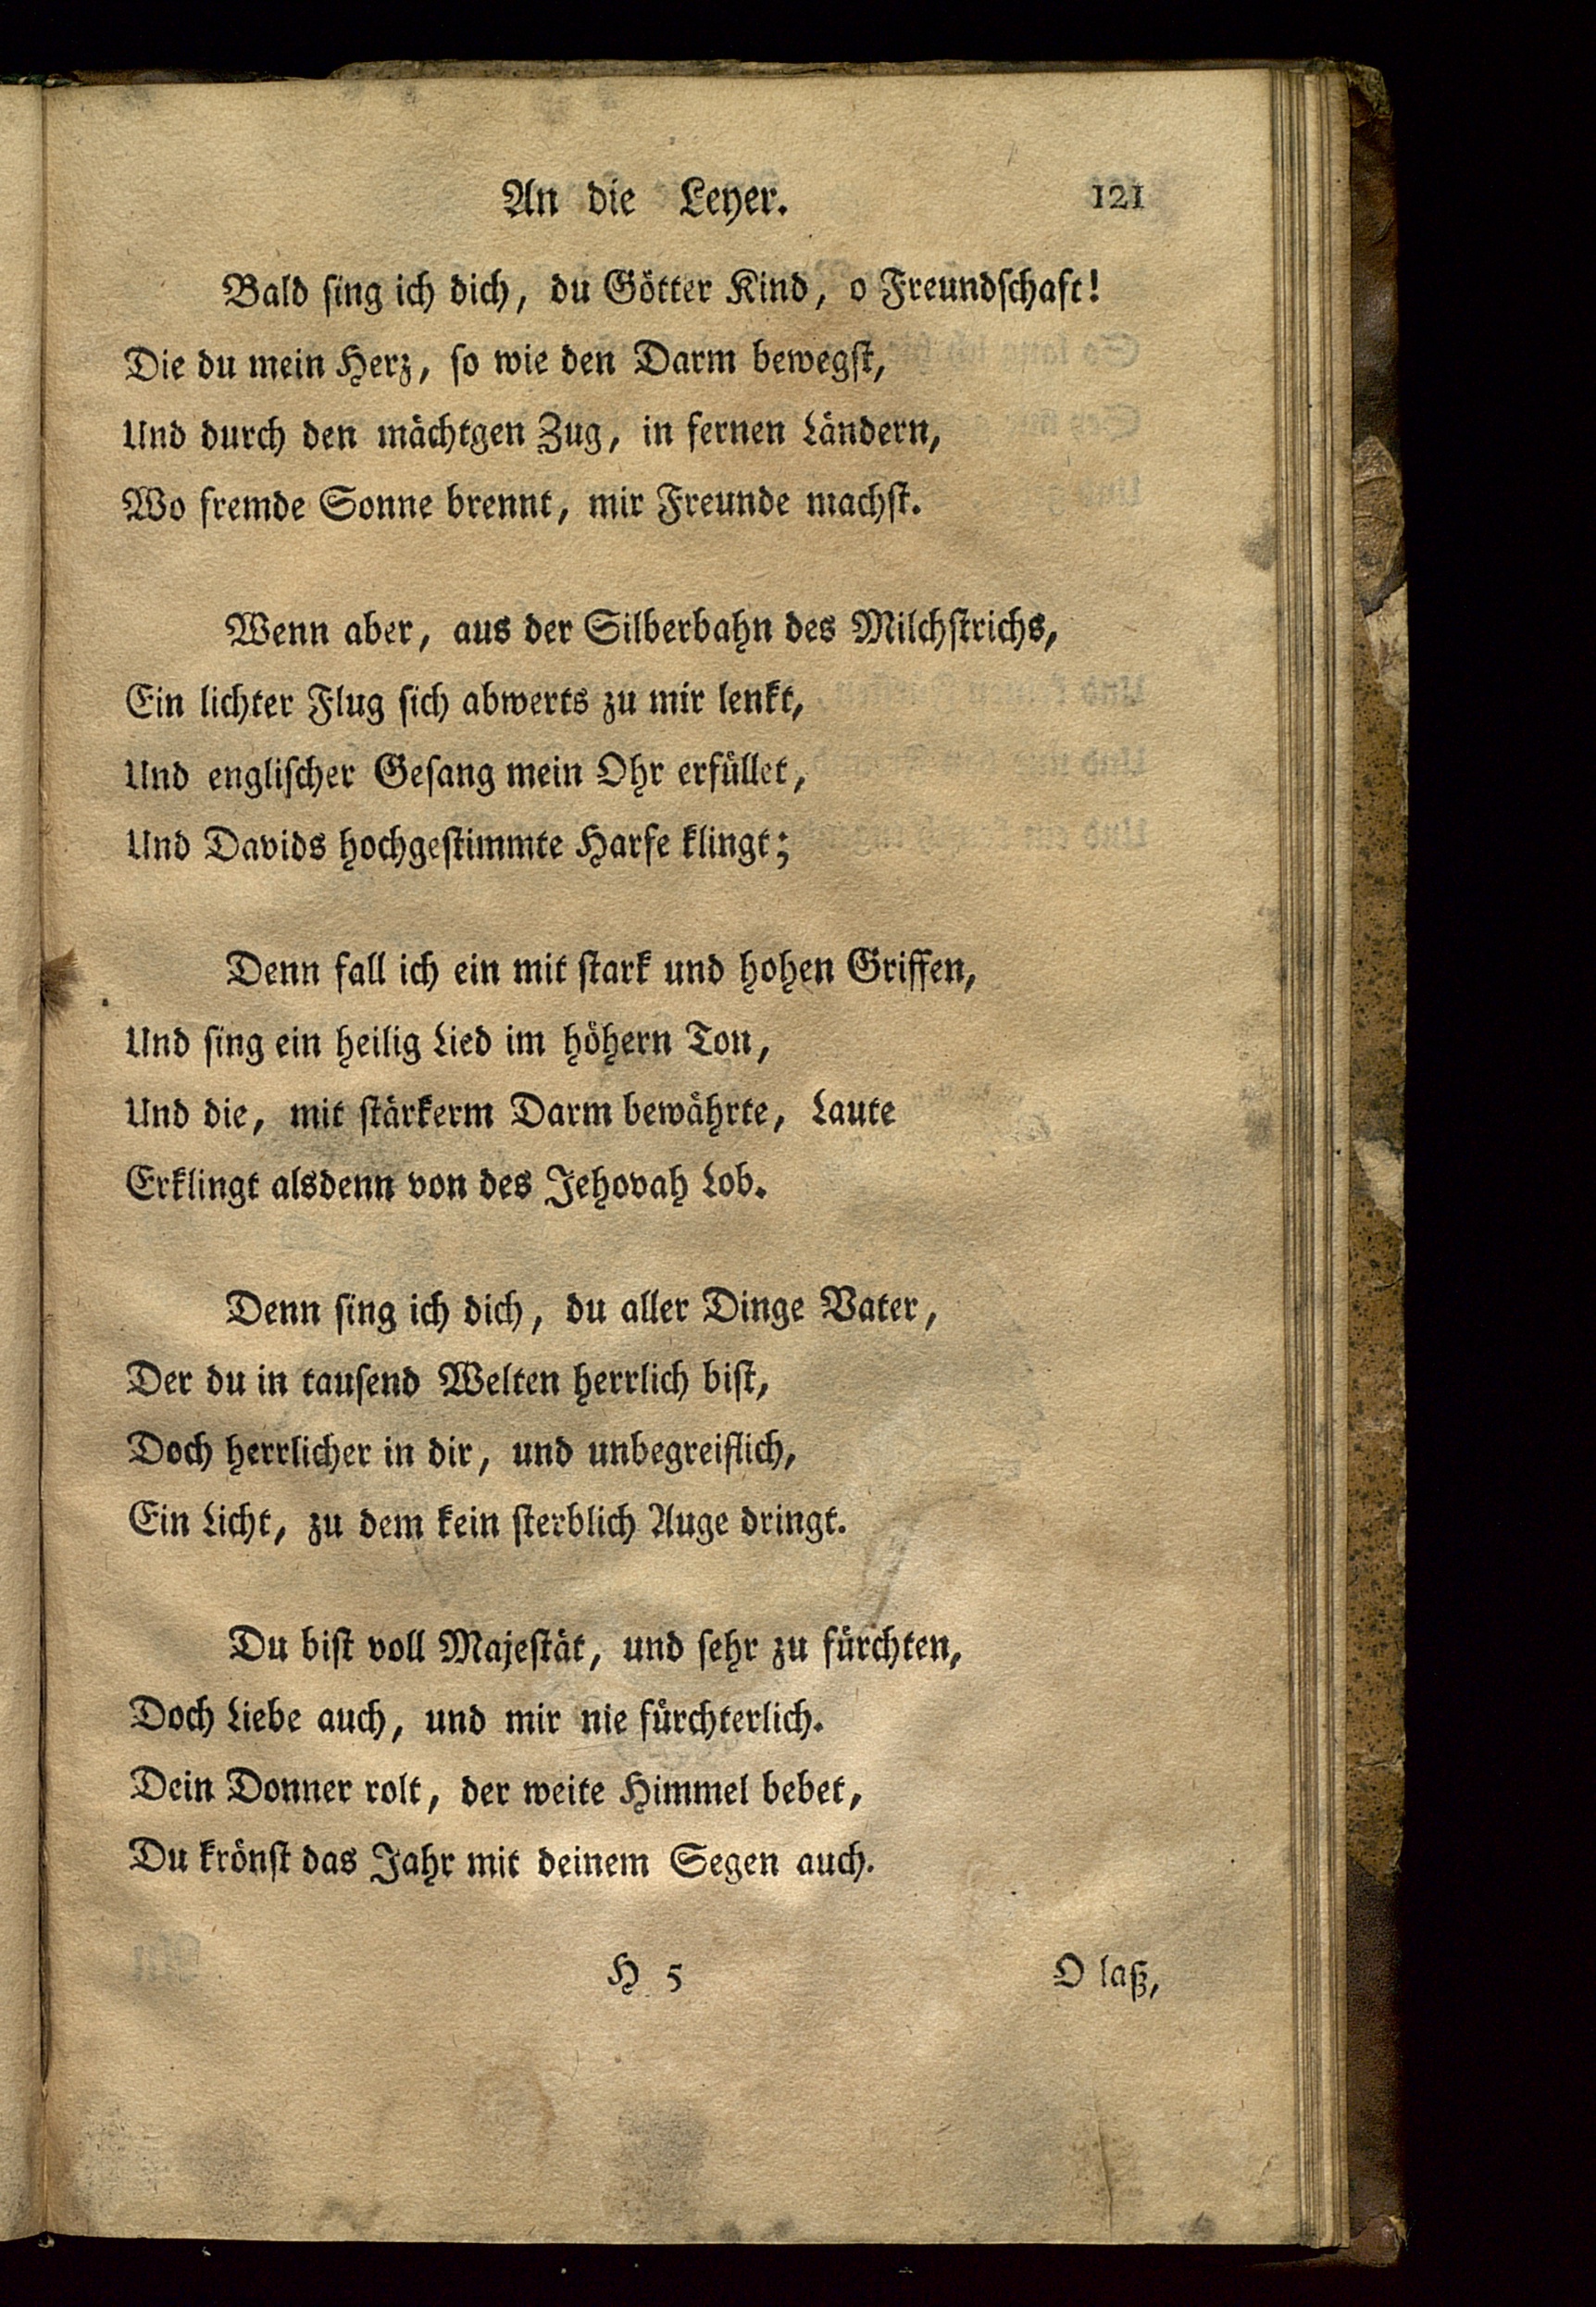 An die Leyer. 121
Bald sing ich dich, du Götter Kind, o Freundschaft!
Die du mein Herz, so wie den Darm bewegst,
Und durch den mächtgen Zug, in fernen Ländern,
Wo fremde Sonne brennt, mir Freunde machst.
Wenn aber, aus der Silberbahn des Milchstrichs,
Ein lichter Flug sich abwerts zu mir lenkt,
Und englischer Gesang mein Ohr erfüllet,
Und Davids hochgestimmte Harfe klingt;
Denn fall ich ein mit stark und hohen Griffen,
Und sing ein heilig Lied im höhern Ton,
Und die, mit stärkerm Darm bewährte, Laute
Erklingt alsdenn von des Jehovah Lob.
Denn sing ich dich, du aller Dinge Vater,
Der du in tausend Welten herrlich bist,
Doch herrlicher in dir, und unbegreiflich,
Ein Licht, zu dem kein sterblich Auge dringt.
Du bist voll Majestät, und sehr zu fürchten,
Doch Liebe auch, und mir nie fürchterlich.
Dein Donner rolt, der weite Himmel bebet,
Du krönst das Jahr mit deinem Segen auch.
H 5 O laß,